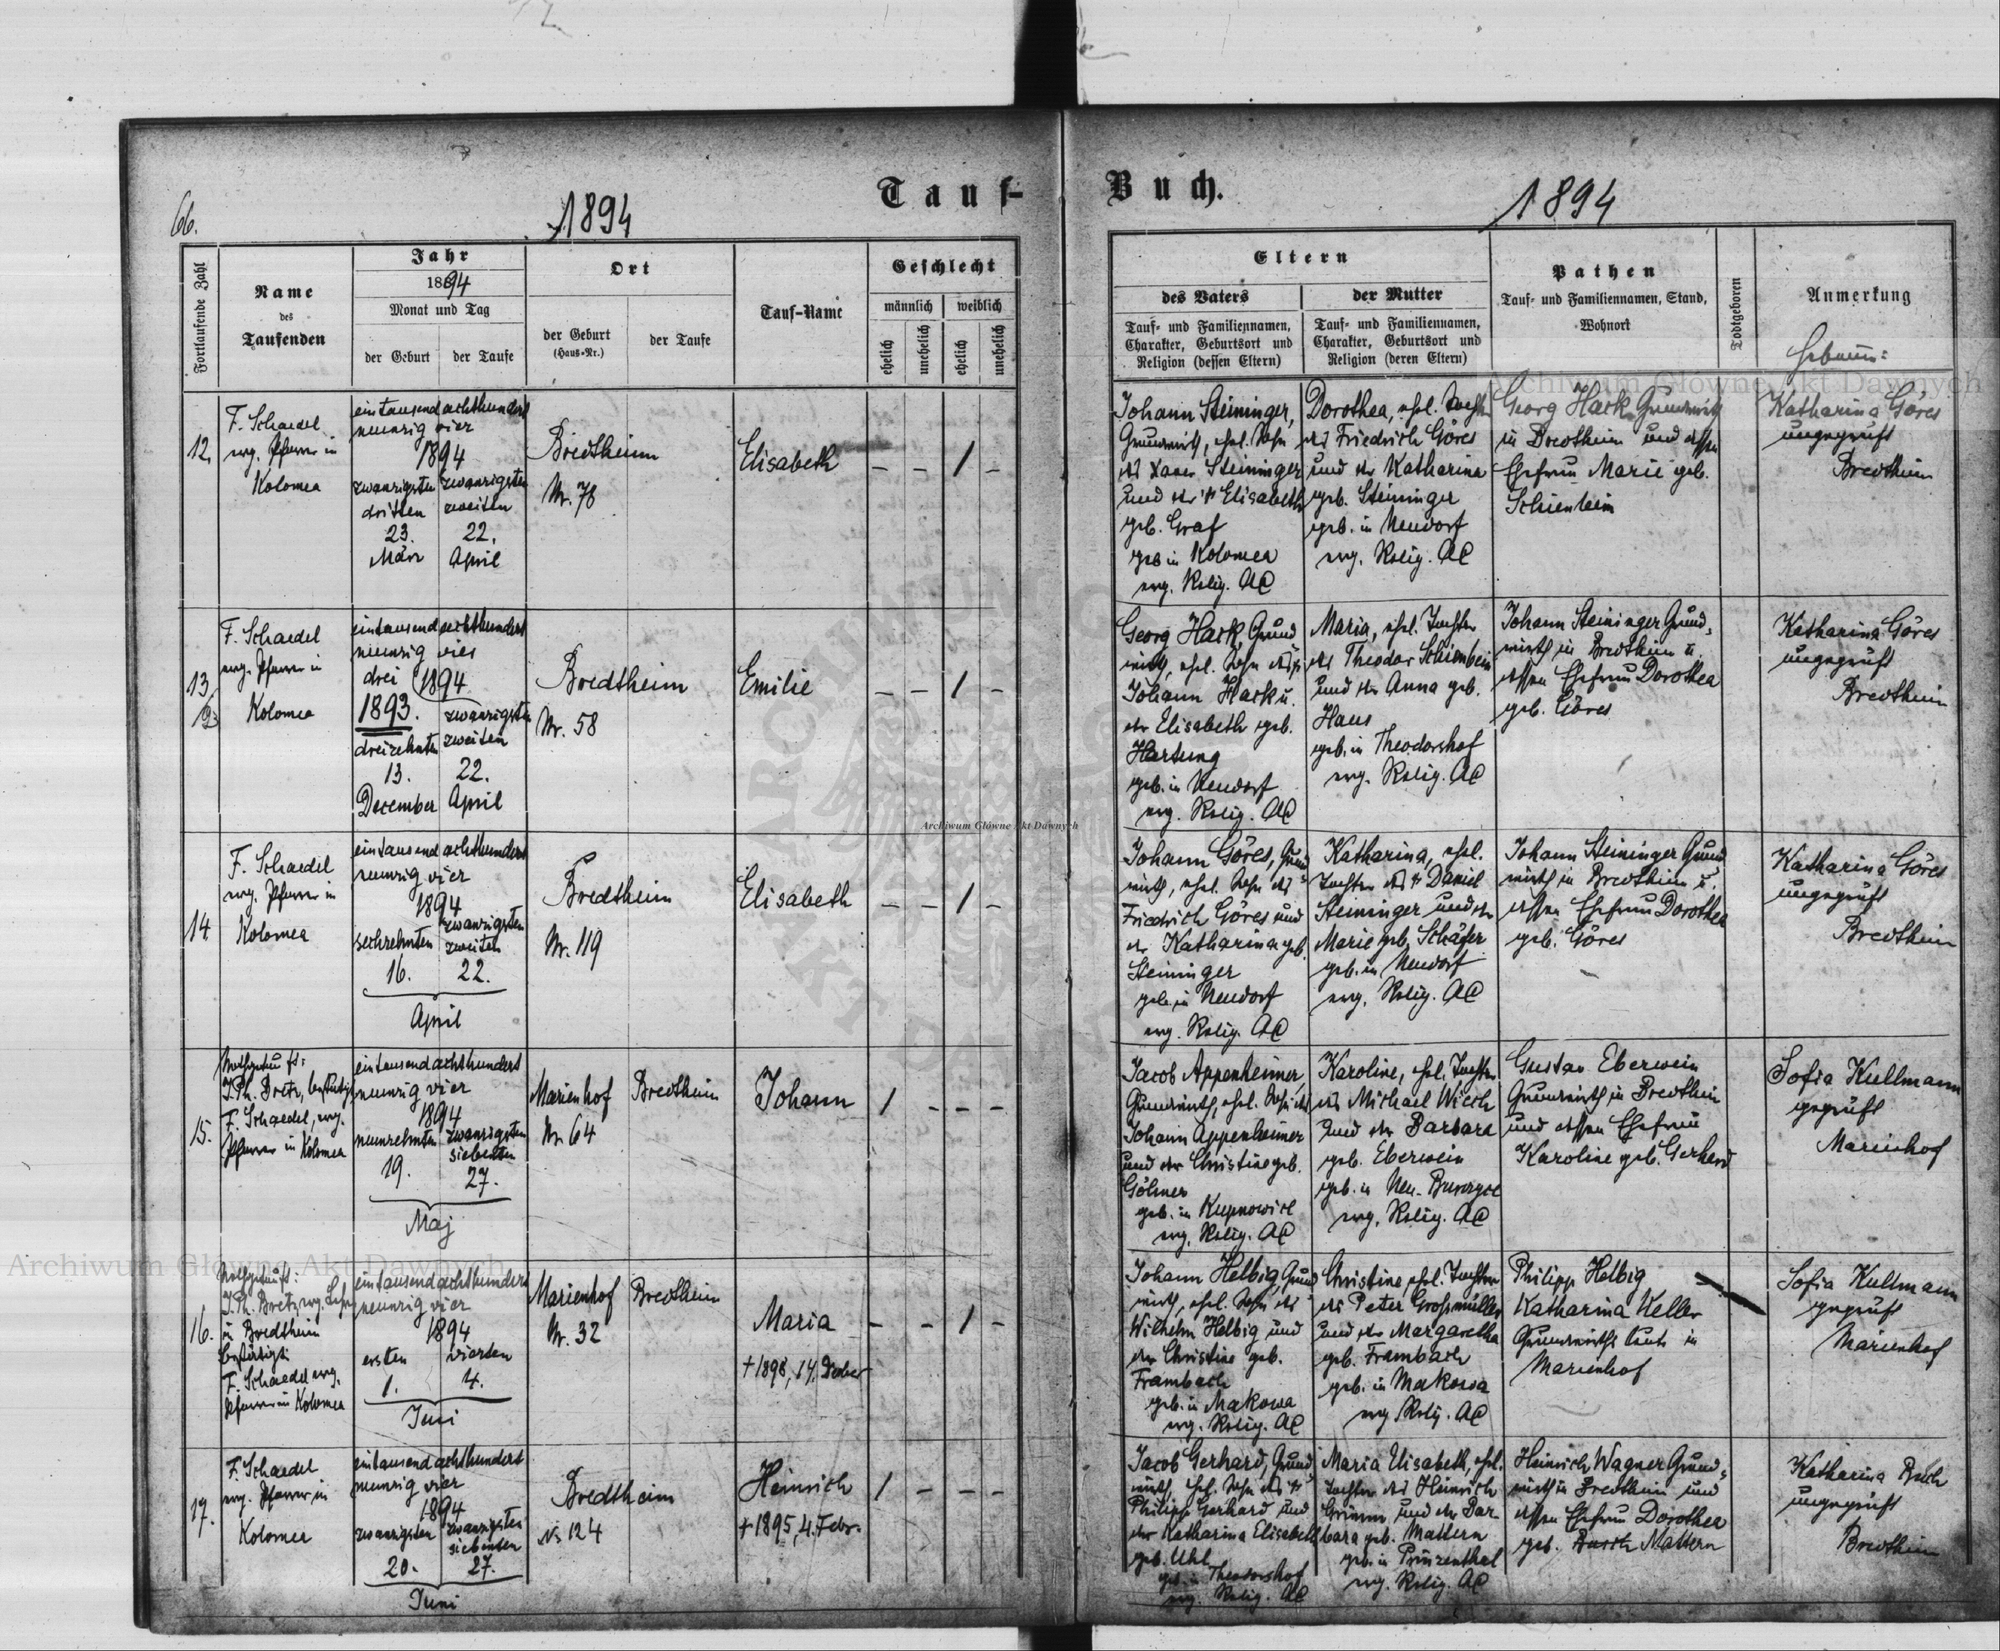 66.
1894
Tauf-
Buch.
1894
Fortlaufende Zahl
Name
des
Taufenden
Jahr
1894
Monat und Tag
der Geburt
der Taufe
Ort
der Geburt
(Haus-Nr.)
der Taufe
Tauf-Name
Geschlecht
männlich
weiblich
ehelich
unehelich
ehelich
unehelich
Eltern
des Vaters
Tauf- und Familiennamen,
Charakter, Geburtsort und
Religion (dessen Eltern)
der Mutter
Tauf- und Familiennamen,
Charakter, Geburtsort und
Religion (deren Eltern)
Pathen
Tauf- und Familiennamen, Stand,
Wohnort
Todtgeboren
Anmerkung
12.
F. Schaedel
evg. Pfarrer in
Kolomea
eintausendachthundert
neunzig vier
1894
zwanzigsten
dritten
23.
März
zwanzigsten
zweiten
22.
April
Bredtheim
Nr. 78
Elisabeth
– – / –
Johann Steininger,
Grundwirth, ehel. Sohn
des Xaver Steininger
und der + Elisabeth
geb. Graf
geb. in Kolomea
evg. Relig. AC
Dorothea, ehel. Tochter
des Friedrich Göres
und der Katharina
geb. Steininger
geb. in Neudorf
evg. Relig. AC
Georg Hack Grundwirth
in Bredtheim und dessen
Ehefrau Marie geb.
Schienbein
Katharina Göres
ungeprüft
Bredtheim
13.
F. Schaedel
evg. Pfarrer in
Kolomea
eintausendachthundert
neunzig vier
drei
1894
1893.
dreizehnten
13.
December
zwanzigsten
zweiten
22.
April
Bredtheim
Nr. 58
Emilie
– – / –
Georg Hack, Grund
wirth, ehel. Sohn des +
Johann Hack u.
der Elisabeth geb.
Hartung
geb. in Neudorf
evg. Relig. AC
Maria, ehel. Tochter
des Theodor Schienbein
und der Anna geb.
Haus
geb. in Theodorshof
evg. Relig. AC
Johann Steininger Grund,
wirth in Bredtheim u.
dessen Ehefrau Dorothea
geb. Göres
Katharina Göres
ungeprüft
Bredtheim
14.
F. Schaedel
evg. Pfarrer in
Kolomea
eintausendachthundert
neunzig vier
1894
sechzehnten
16.
zwanzigsten
zweiten
22.
April
Bredtheim
Nr. 119
Elisabeth
– – / –
Johann Göres, Grund
wirth, ehel. Sohn des
Friedrich Göres und
der Katharina geb.
Steininger
geb. in Neudorf
evg. Relig. AC
Katharina, ehel.
Tochter des + Daniel
Steininger und der
Marie geb. Schäfer
geb. in Neudorf
evg. Relig. AC
Johann Steininger Grund,
wirth in Bredtheim u.
dessen Ehefrau Dorothea
geb. Göres
Katharina Göres
ungeprüft
Bredtheim
15.
Nothgetauft:
J. Ph. Bretz, bestätigt
F. Schaedel, evg.
Pfarrer in Kolomea
eintausendachthundert
neunzig vier
1894
neunzehnten
19.
zwanzigsten
siebenten
27.
Maj
Marienhof
Nr 64
Bredtheim
Johann
/ – – –
Jacob Appenheimer,
Grundwirth, ehel. Sohn des
Johann Appenheimer
und der Christine geb.
Göhner
geb. in Kupnowice
evg. Relig. AC
Karoline, ehel. Tochter
des Michael Wiech
und der Barbara
geb. Eberwein
geb. in
evg. Relig. AC
Gustav Eberwein
Grundwirth in Bredtheim
und dessen Ehefrau
Karoline geb. Gerhard
Sofia Kullmann
geprüft
Marienhof
16.
Nothgetauft:
J. Ph. Bretz evg. Lehrer
in Bredtheim
bestätigt:
F. Schaedel evg.
Pfarrer in Kolomea
eintausendachthundert
neunzig vier
1894
ersten
1.
vierten
4.
Juni
Marienhof
Nr. 32
Bredtheim
Maria
+ 1898, 14. Decber
– – / –
Johann Helbig, Grund
wirth, ehel. Sohn des
Wilhelm Helbig und
der Christine geb.
Frambach
geb. in Makowa
evg. Relig. AC
Christine, ehel. Tochter
des Peter Grossmüller
und der Margaretha
geb. Frambach
geb. in Makowa
evg. Relig. AC
Philipp Helbig
Katharina Keller
Grundwirths leute in
Marienhof
Sofia Kullmann
geprüft
Marienhof
17.
F. Schaedel
evg. Pfarrer in
Kolomea
eintausendachthundert
neunzig vier
1894
zwanzigsten
20.
zwanzigsten
siebenten
27.
Juni
Bredtheim
Nr. 124
Heinrich
+ 1895, 4. Febr.
/ – – –
Jacob Gerhard, Grund
wirth, ehel. Sohn des +
Philipp Gerhard und
der Katharina Elisabeth
geb. Uhl
geb. in Theodorshof
evg. Relig. AC
Maria Elisabeth, ehel.
Tochter des Heinrich
Grimm und der Bar-
bara geb. Mattern
geb. in Prinzenthal
evg. Relig. AC
Heinrich Wagner Grund,
wirth in Bredtheim und
dessen Ehefrau Dorothea
geb. Mattern
Katharina
ungeprüft
Bredtheim
Archiwum Główne Akt Dawnych
Archiwum Główne Akt Dawnych
Archiwum Główne Akt Dawnych